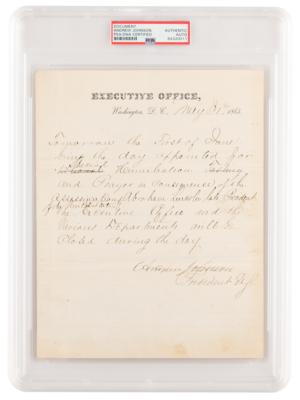 DOCUMENT
ANDREW JOHNSON
PSA/DNA CERTIFIED
AUTHENTIC
AUTO
PSA
EXECUTIVE OFFICE,
Washington, D. C. May 31st 1865
Tomorrow the First of June
being the day appointed for
special Humiliation
and Prayer in consequence of the
assassination of Abraham Lincoln late President
of the United States
the Executive Office and the
various Departments will be
closed during the day.
Andrew Johnson
President U.S.